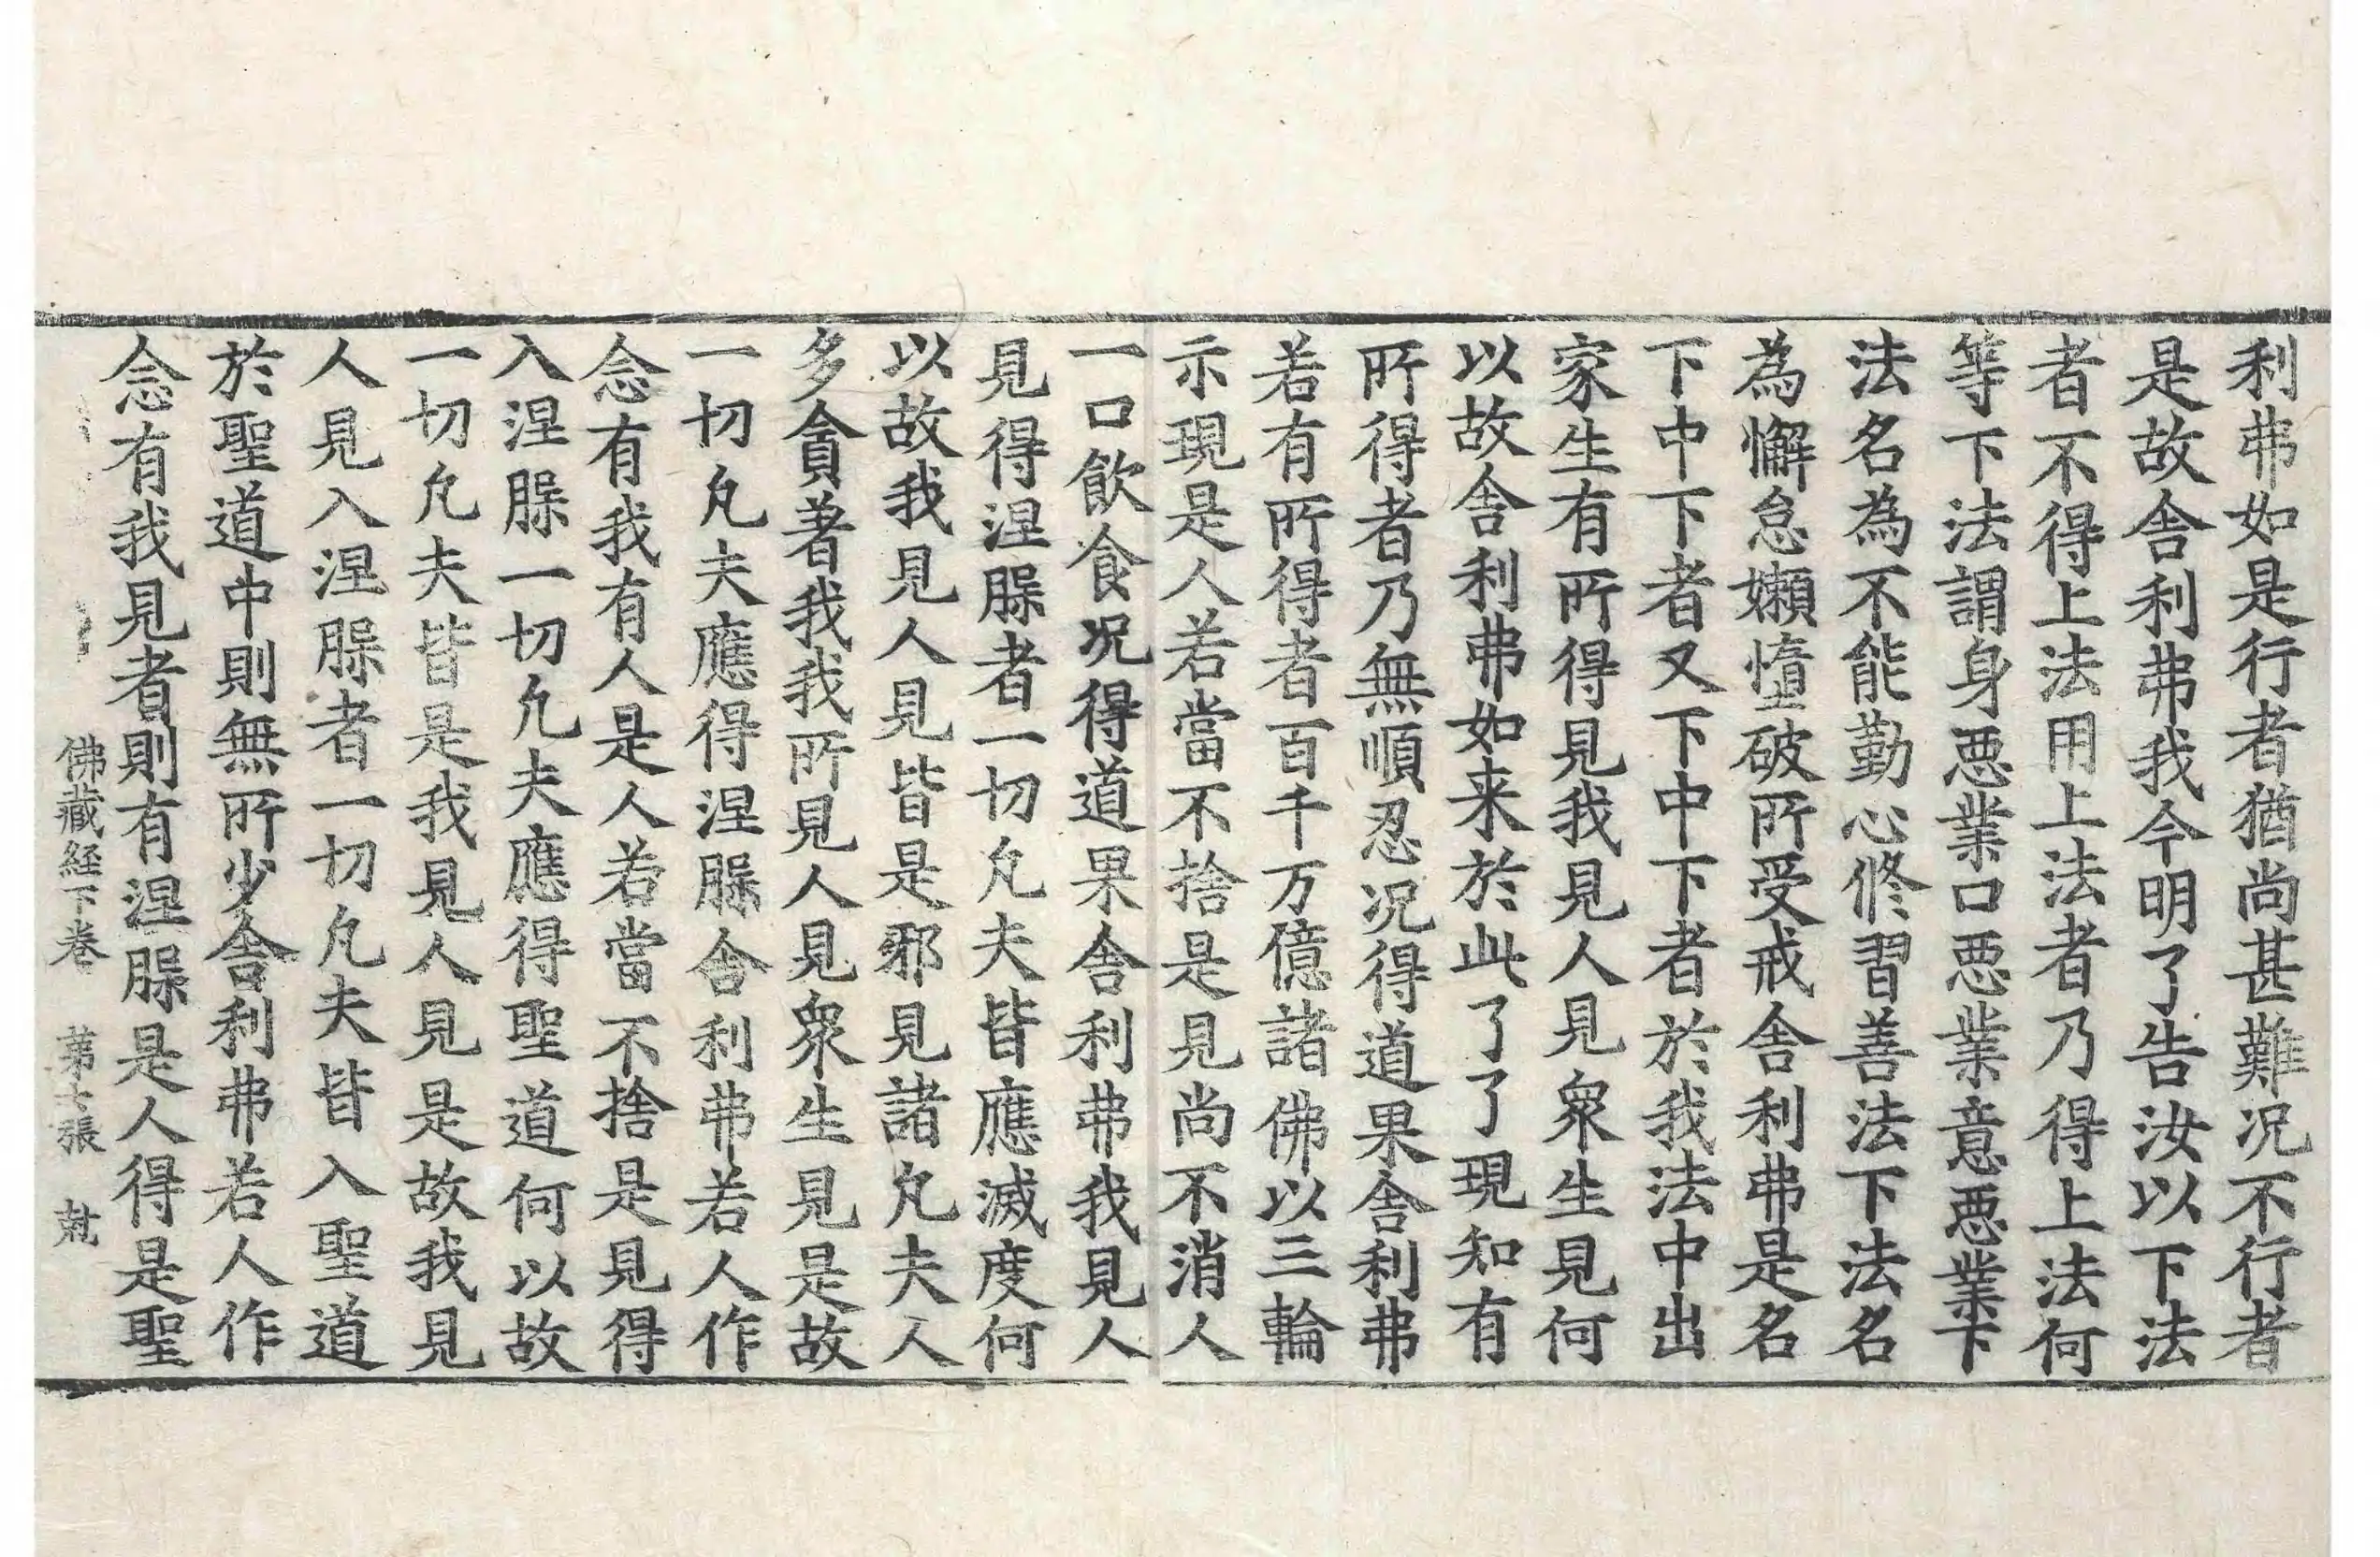 利弗如是行者猶尚甚難況不行者
是故舎利弗我今明了告汝以下法
者不得上法用上法者乃得上法何
等下法謂身惡業口惡業意惡業下
法名為不能勤心修習善法下法名
為懈怠嬾憜破所受戒舎利弗是名
下中下者又下中下者於我法中出
家生有所得見我見人見衆生見何
以故舎利弗如来於此了了現知有
所得者乃無順忍况得道果舎利弗
若有所得者百千万億諸佛以三輪
示現是人若當不捨是見尚不消人
一口飲食况得道果舎利弗我見人
見得涅槃者一切凢夫皆應滅度何
以故我見人見皆是邪見諸凢夫人
多貪著我我所見人見衆生見是故
一切凢夫應得涅槃舎利弗若人作
念有我有人是人若當不捨是見得
入涅槃一切凢夫應得聖道何以故
一切凢夫皆是我見人見是故我見
人見入涅槃者一切凢夫皆入聖道
於聖道中則無所少舎利弗若人作
念有我見者則有涅槃是人得是聖
佛藏経下巻 苐七張